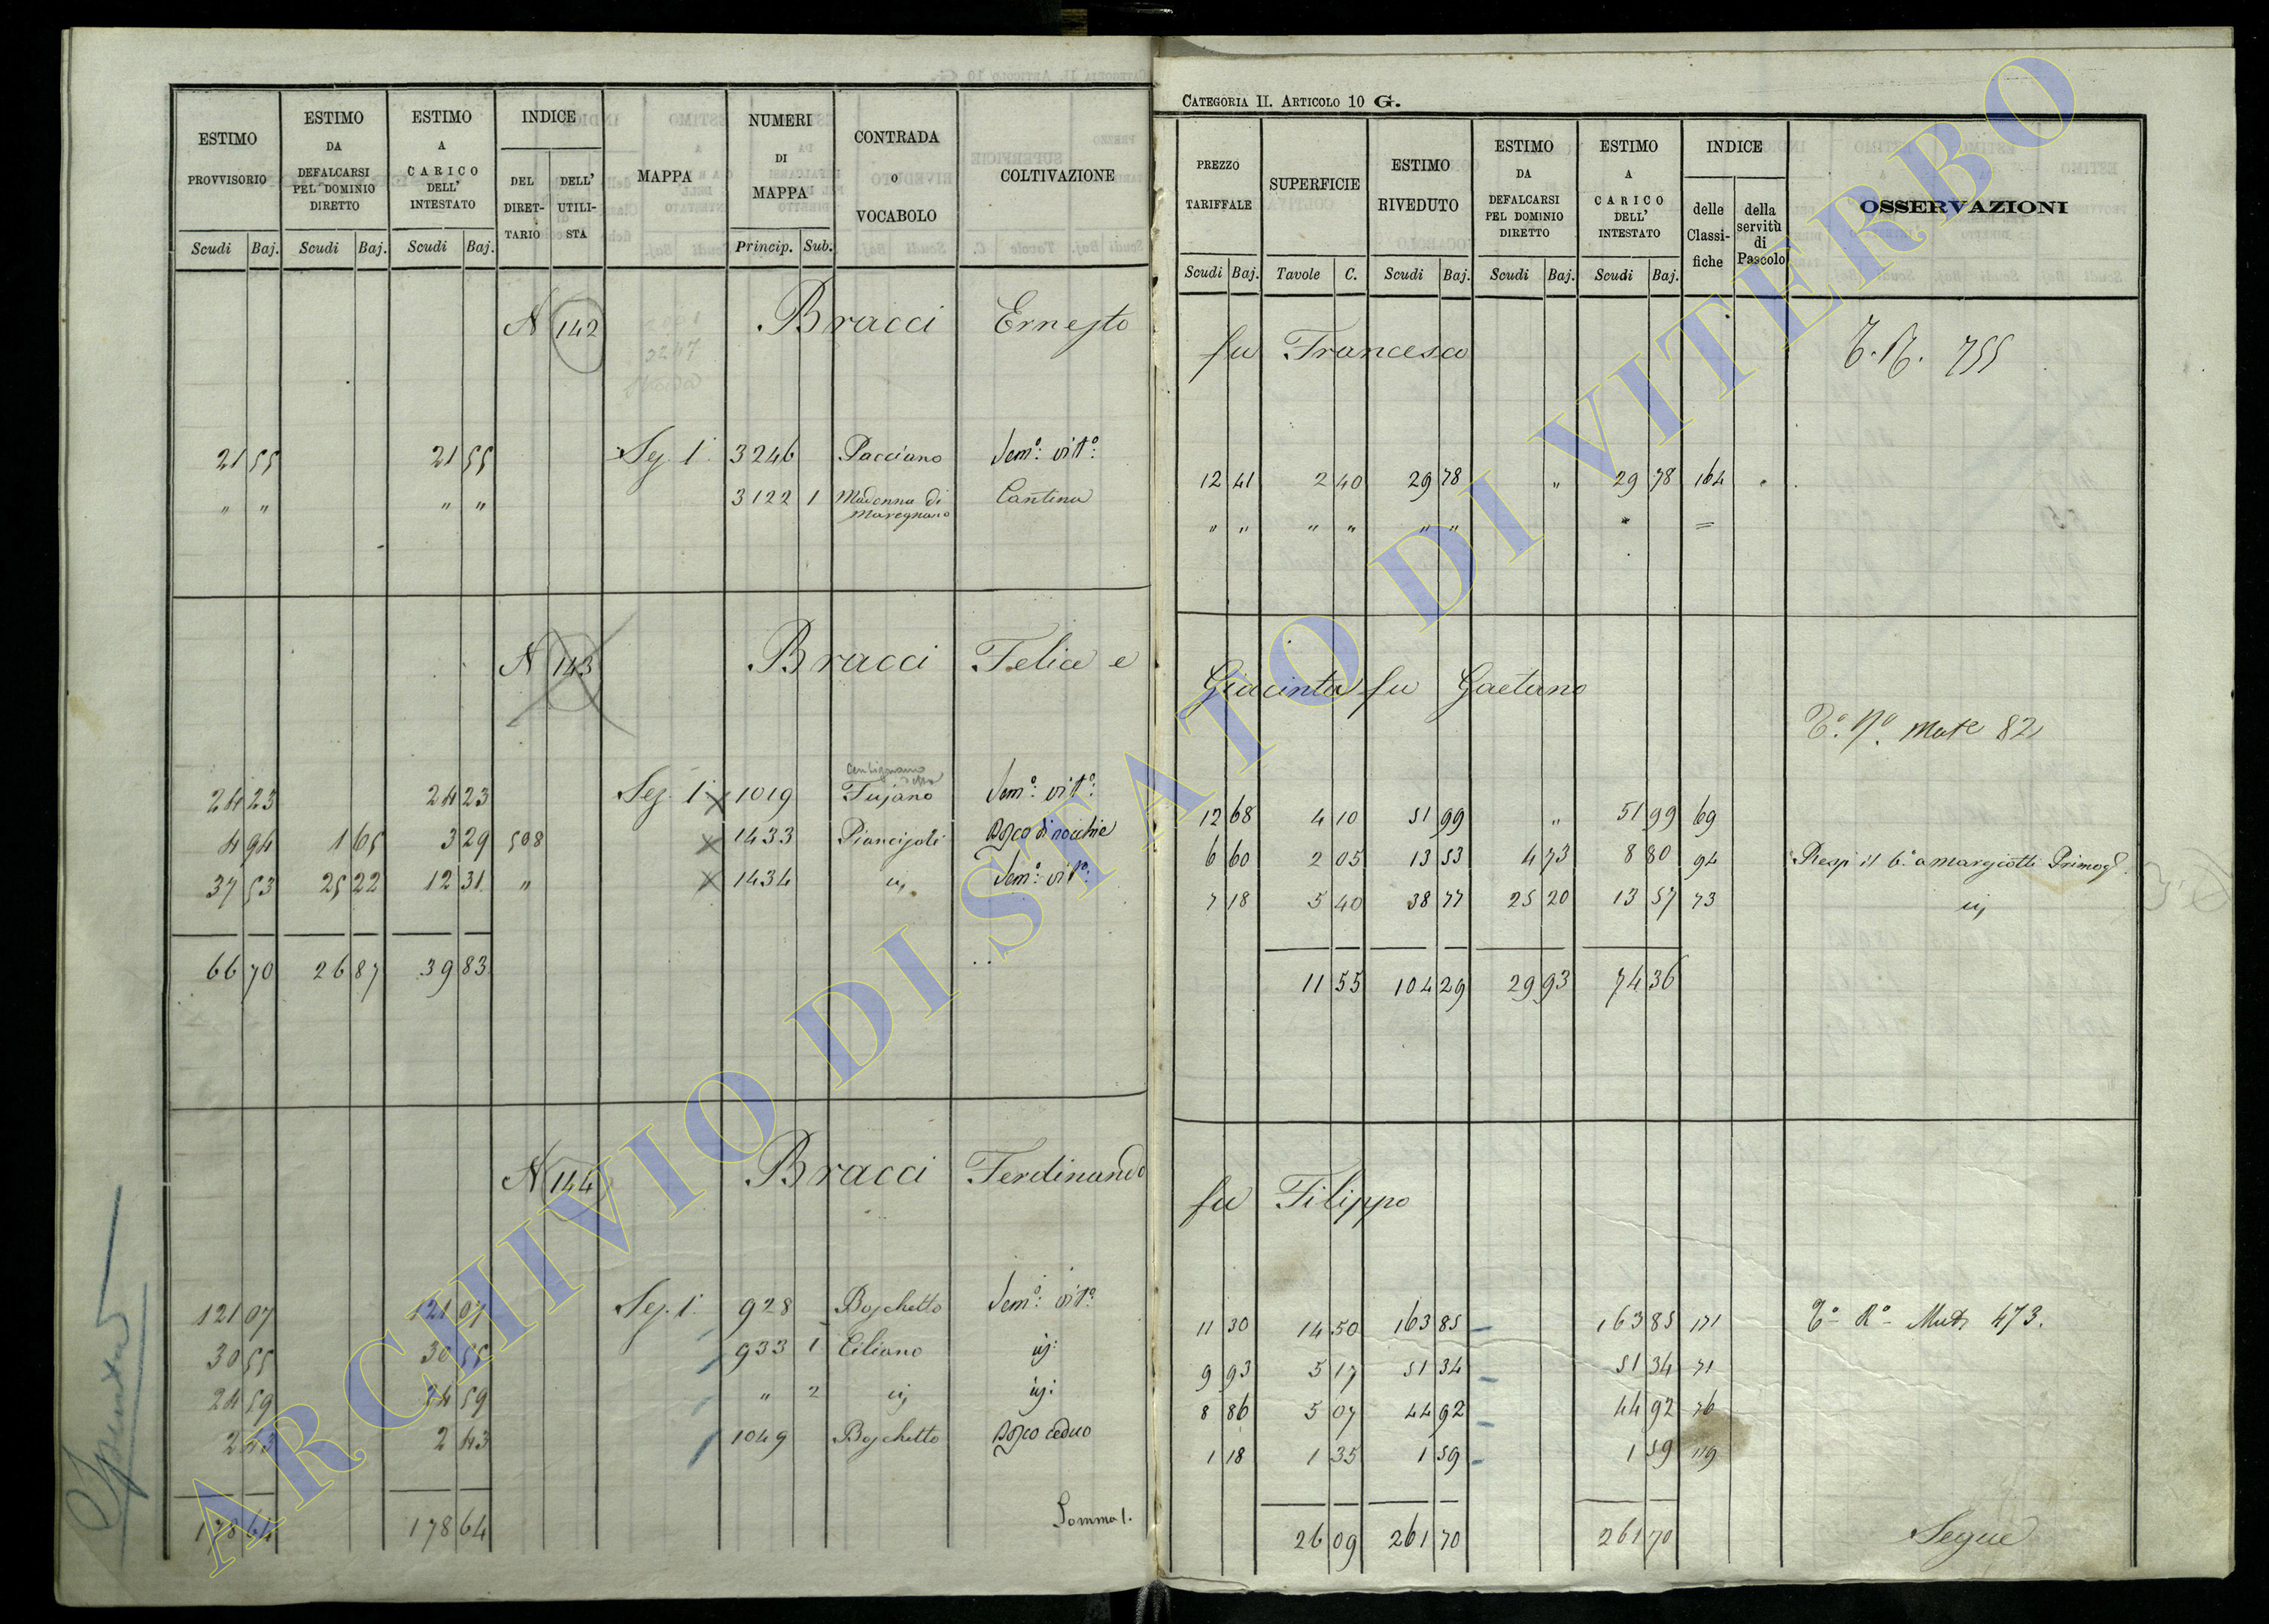 CATEGORIA II. ARTICOLO 10 G.
ESTIMO PROVVISORIO | ESTIMO DA DEFALCARSI PEL DOMINIO DIRETTO | ESTIMO A CARICO DELL' INTESTATO | INDICE DEL DIRETTARIO | DELL' UTILISTA | MAPPA | NUMERI DI MAPPA | CONTRADA O VOCABOLO | COLTIVAZIONE
Scudi Baj. | Scudi Baj. | Scudi Baj. | Princip. Sub.
PREZZO TARIFFALE | SUPERFICIE | ESTIMO RIVEDUTO | ESTIMO DA DEFALCARSI PEL DOMINIO DIRETTO | ESTIMO A CARICO DELL' INTESTATO | INDICE delle Classifiche | della servitù di Pascolo | OSSERVAZIONI
Scudi Baj. | Tavole C. | Scudi Baj. | Scudi Baj. | Scudi Baj.
N 142 Bracci Ernesto fu Francesco
21 55 | 21 55 | Sez. 1ª | 3246 | Pacciano | Sem.º vit.º | 12 41 | 2 40 | 29 78 | " | 29 78 | 164
" " | " " | 3122 1 | Madonna di Maregnano | Cantina | " " | " " | " "
N 143 Bracci Felice e Giacinta fu Gaetano
24 23 | 24 23 | Sez. 1ª | 1019 | Fujano | Sem.º vit.º | 12 68 | 4 10 | 51 99 | " | 51 99 | 69
4 94 | 1 65 | 3 29 | 508 | 1433 | Piancisoli | Bosco di nocchie | 6 60 | 2 05 | 13 53 | 4 73 | 8 80 | 94
37 53 | 25 22 | 12 31 | " | 1434 | Sem.º vit.º | 7 18 | 5 40 | 38 77 | 25 20 | 13 57 | 73
66 70 | 26 87 | 39 83 | 11 55 | 104 29 | 29 93 | 74 36
N 144 Bracci Ferdinando fu Filippo
121 07 | 121 07 | Sez. 1ª | 928 | Boschetto | Sem.º vit.º | 11 30 | 14 50 | 163 85 | 163 85 | 171 | Tº Rº Mut. 473.
30 55 | 30 55 | 933 1 | Ciliano | 9 93 | 5 17 | 51 34 | 51 34 | 71
24 59 | 24 59 | " 2 | 8 86 | 5 07 | 44 92 | 44 92 | 76
2 43 | 2 43 | 1049 | Boschetto | Bosco ceduo | 1 18 | 1 35 | 1 59 | 1 59 | 119
Somma 1.
178 64 | 178 64 | 26 09 | 261 70 | 261 70 | Segue
ARCHIVIO DI STATO DI VITERBO